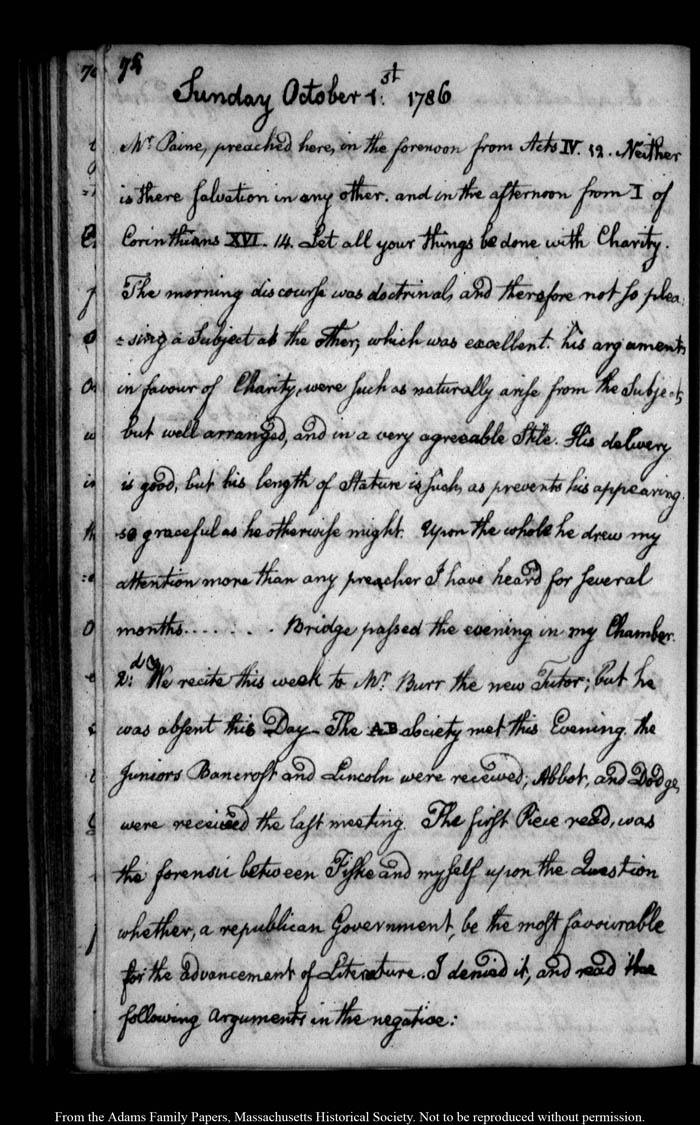 76
Sunday October 1.st 1786
Mr. Paine, preached here, in the forenoon from Acts IV. 12. Neither
is there salvation in any other. and in the afternoon from I of
Corinthians XVI. 14. Let all your things be done with Charity.
The morning discourse was doctrinal, and therefore not so plea:
=sing a Subject as the other, which was excellent. his arguments
in favour of Charity, were such as naturally arise from the Subject,
but well arranged, and in a very agreeable Stile. His delivery
is good, but his length of Stature is such, as prevents his appearing.
so graceful as he otherwise might. Upon the whole he drew my
attention more than any preacher I have heard for several
months....... Bridge passed the evening in my Chamber.
2:d We recite this week to Mr. Burr the new Tutor; but he
was absent this Day— The AB society met this Evening. the
Juniors Bancroft and Lincoln were received; Abbot, and Dodge,
were received the last meeting. The first Piece read, was
the forensic between Fiske and myself upon the Question
whether, a republican Government, be the most favourable
for the advancement of Literature. I denied it, and read the
following arguments in the negative:
From the Adams Family Papers, Massachusetts Historical Society. Not to be reproduced without permission.